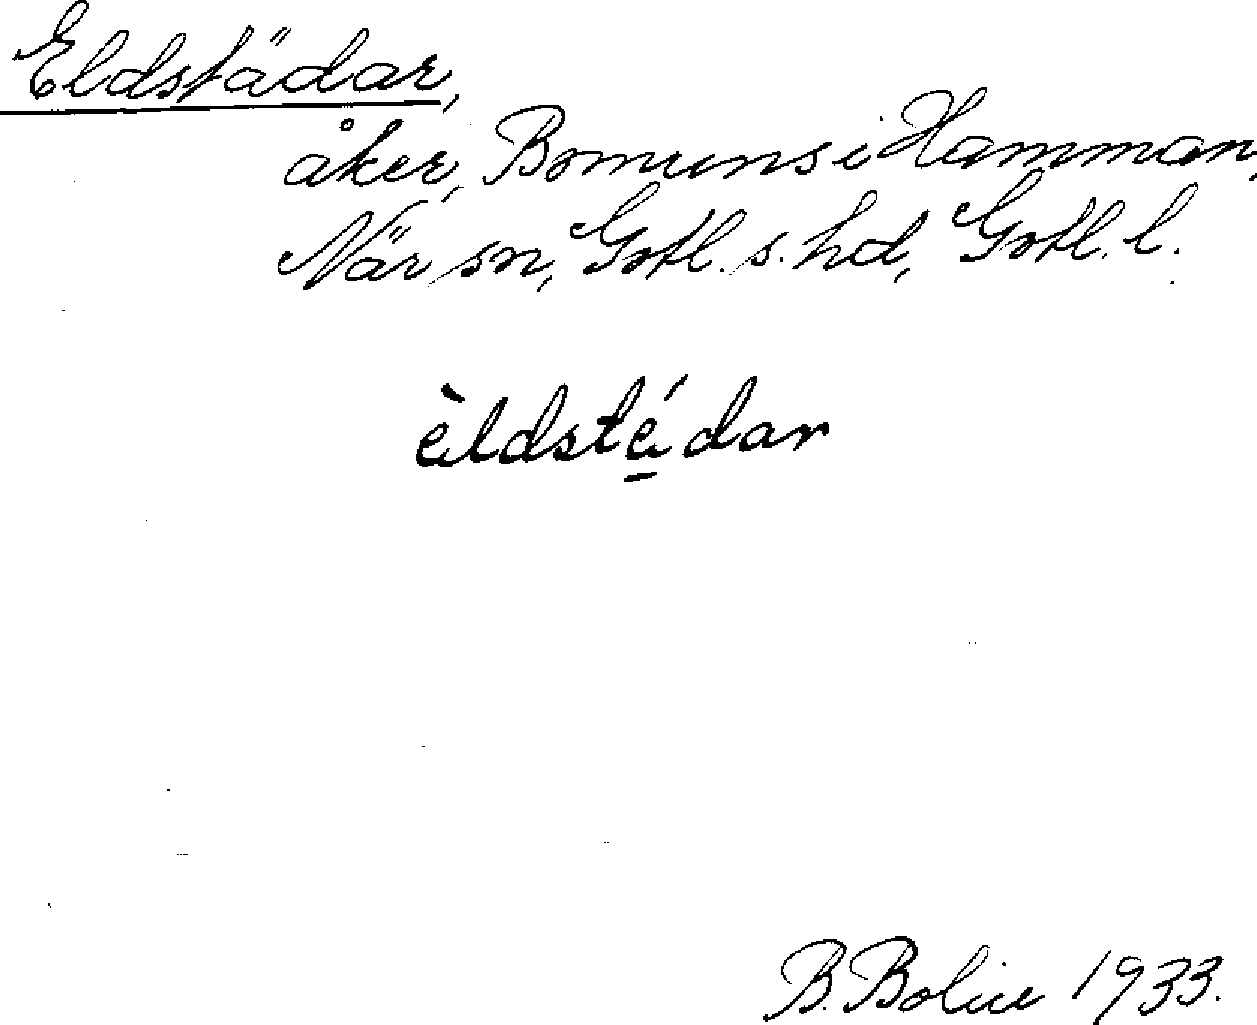 Eldstädar,
åker, Bomuns i Hamman,
När sn, Gotl. s. hd, Gotl. l.
èldsté̱dar
B. Bolin 1933.